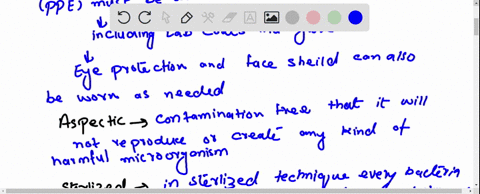 (PPE) must be
including Lab coats and
Eye protection and face sheild can also
be worn as needed
Aspectic → contamination free that it will
not reproduce or create any kind of
harmful microorganism
sterilized → in sterilized technique every bacteria